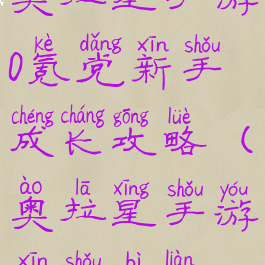 奥拉星手游
kè dǎng xīn shǒu
0氪党新手
chéng cháng gōng lüè
成长攻略（
ào lā xīng shǒu yóu
奥拉星手游
xīn shǒu bì liàn